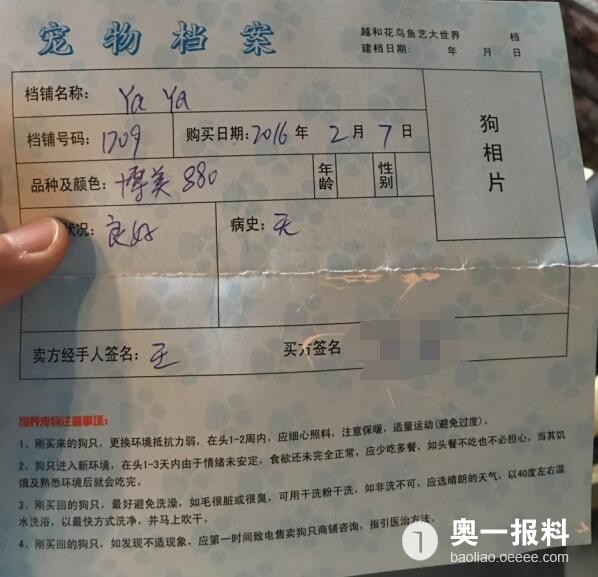 宠物档案
越和花鸟鱼艺大世界 档
建档日期： 年 月 日
档铺名称： Ya Ya
狗相片
档铺号码：1709 购买日期：2016年2月7日
品种及颜色：博美 880 年龄 性别
状况：良好 病史：无
卖方经手人签名：王 买方签名
饲养宠物注意事项：
1、刚买来的狗只，更换环境抵抗力弱，在头1-2周内，应细心照料，注意保暖，适量运动(避免过度)。
2、狗只进入新环境，在头1-3天内由于情绪未安定，食欲还未完全正常，应少吃多餐，如头餐不吃也不必担心，当其饥
饿及熟悉环境后就会吃完。
3、刚买回的狗只，最好避免洗澡，如毛很脏或很臭，可用干洗粉干洗，如非洗不可，应选晴朗的天气，以40度左右温
水洗浴，以最快方式洗净，并马上吹干。
4、刚买回的狗只，如发现不适现象，应第一时间致电售卖狗只商铺咨询，指引医治方法。
奥一报料
baoliao.oeeee.com